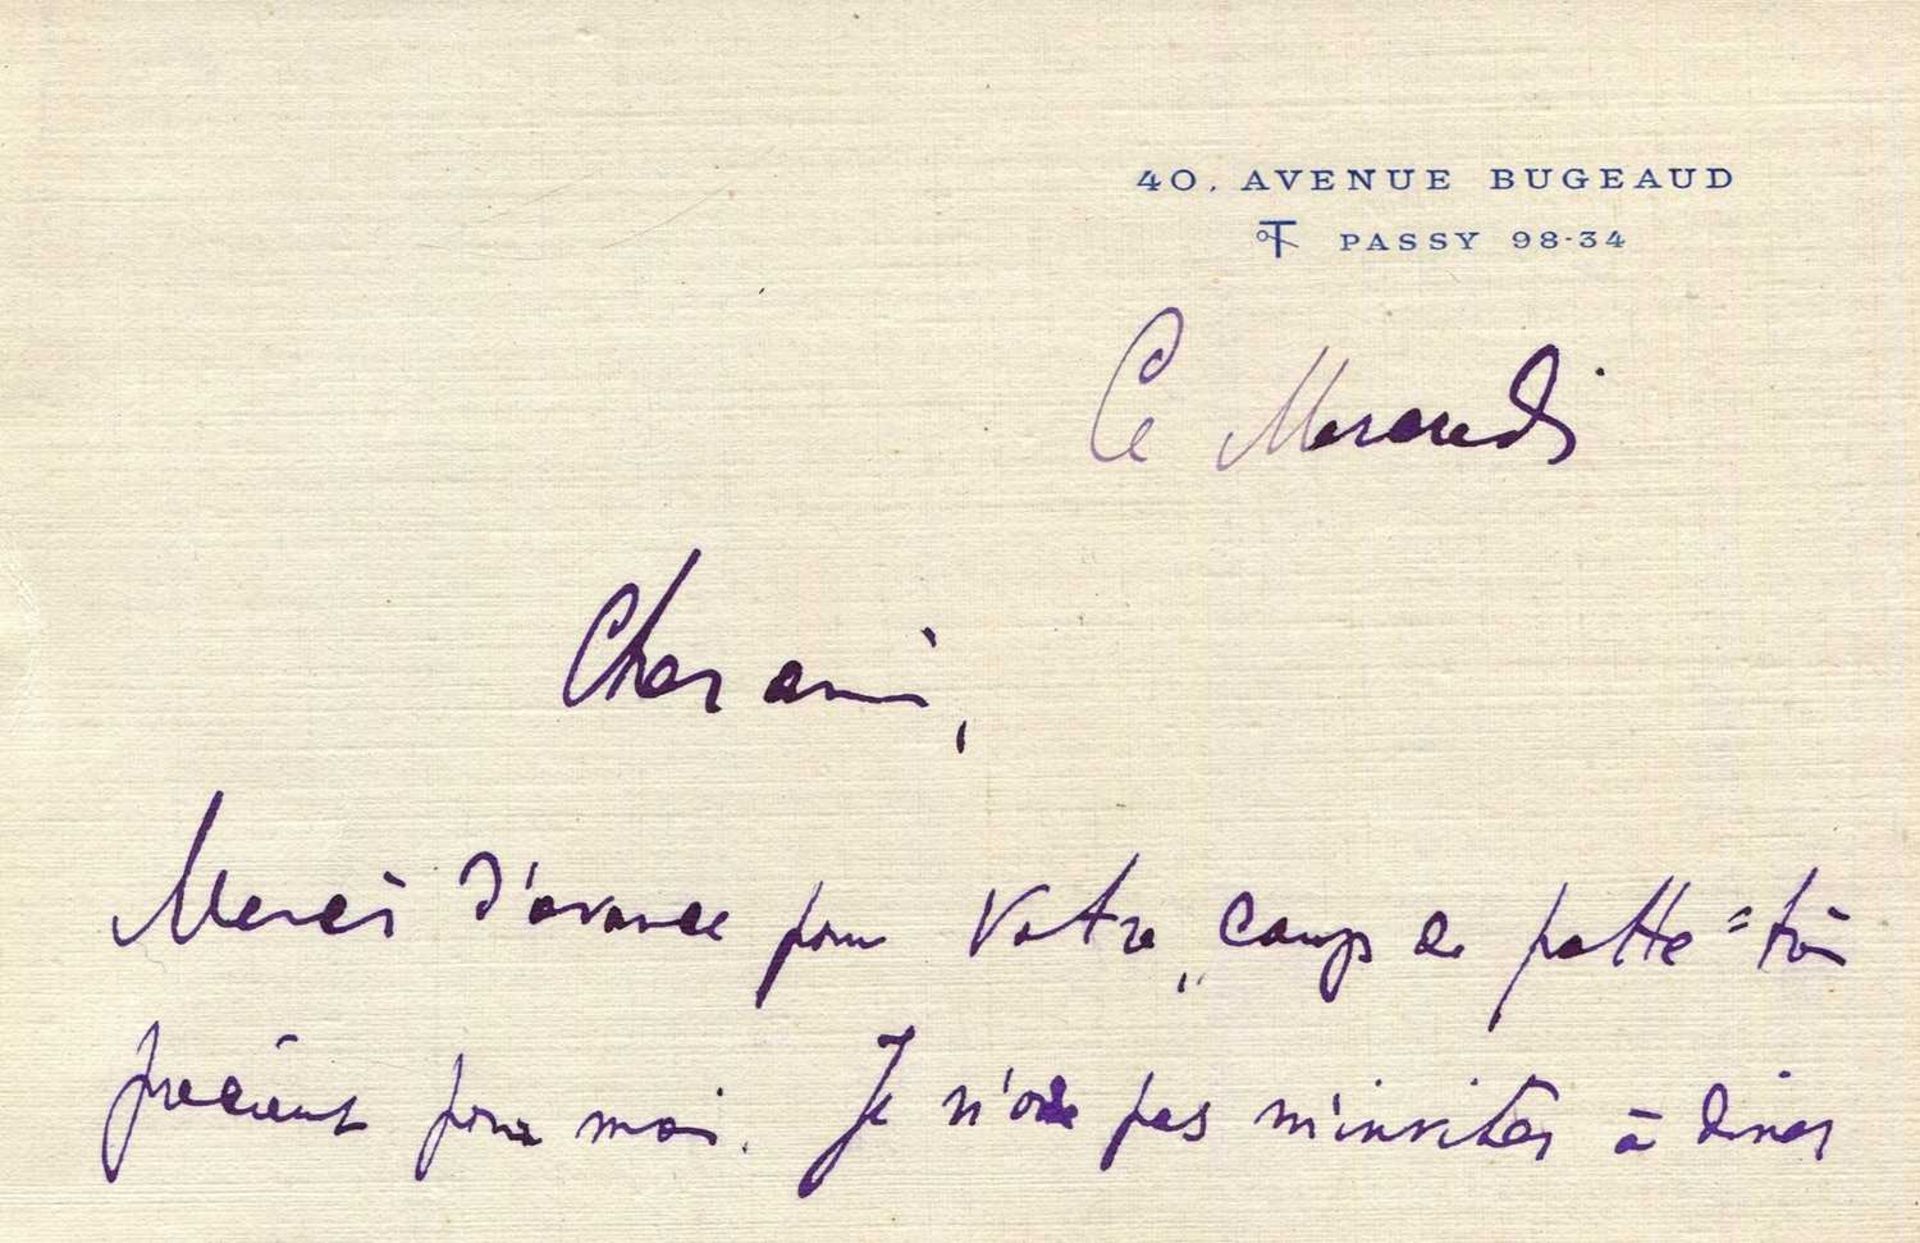 40, AVENUE BUGEAUD
PASSY 98-34
Ce Mercredi
Cher ami,
Merci d'avance pour votre „coup de patte" très
précieux pour moi. Je n'ose pas m'inviter à diner